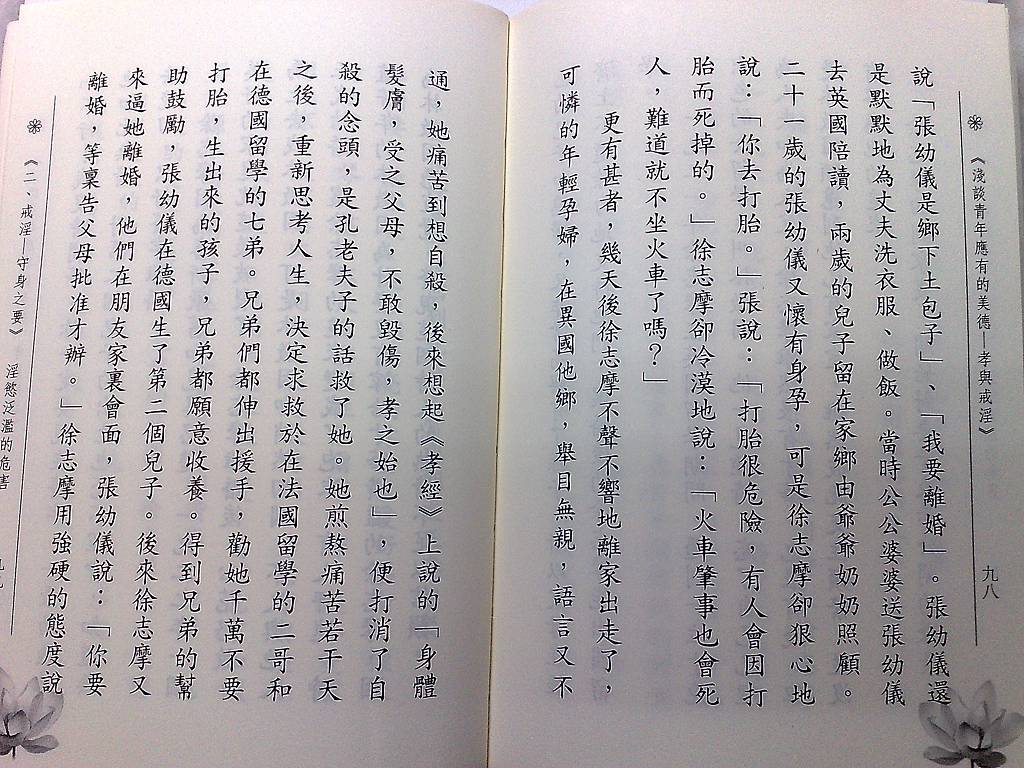 《淺談青年應有的美德—孝與戒淫》
九八
說「張幼儀是鄉下土包子」、「我要離婚」。張幼儀還
是默默地為丈夫洗衣服、做飯。當時公公婆婆送張幼儀
去英國陪讀，兩歲的兒子留在家鄉由爺爺奶奶照顧。
二十一歲的張幼儀又懷有身孕，可是徐志摩卻狠心地
說：「你去打胎。」張說：「打胎很危險，有人會因打
胎而死掉的。」徐志摩卻冷漠地說：「火車肇事也會死
人，難道就不坐火車了嗎？」
更有甚者，幾天後徐志摩不聲不響地離家出走了，
可憐的年輕孕婦，在異國他鄉，舉目無親，語言又不
通，她痛苦到想自殺，後來想起《孝經》上說的「身體
髮膚，受之父母，不敢毀傷，孝之始也」，便打消了自
殺的念頭，是孔老夫子的話救了她。她煎熬痛苦若干天
之後，重新思考人生，決定求救於在法國留學的二哥和
在德國留學的七弟。兄弟們都伸出援手，勸她千萬不要
打胎，生出來的孩子，兄弟都願意收養。得到兄弟的幫
助鼓勵，張幼儀在德國生了第二個兒子。後來徐志摩又
來逼她離婚，他們在朋友家裏會面，張幼儀說：「你要
離婚，等稟告父母批准才辦。」徐志摩用強硬的態度說
《二、戒淫—守身之要》 淫慾泛濫的危害